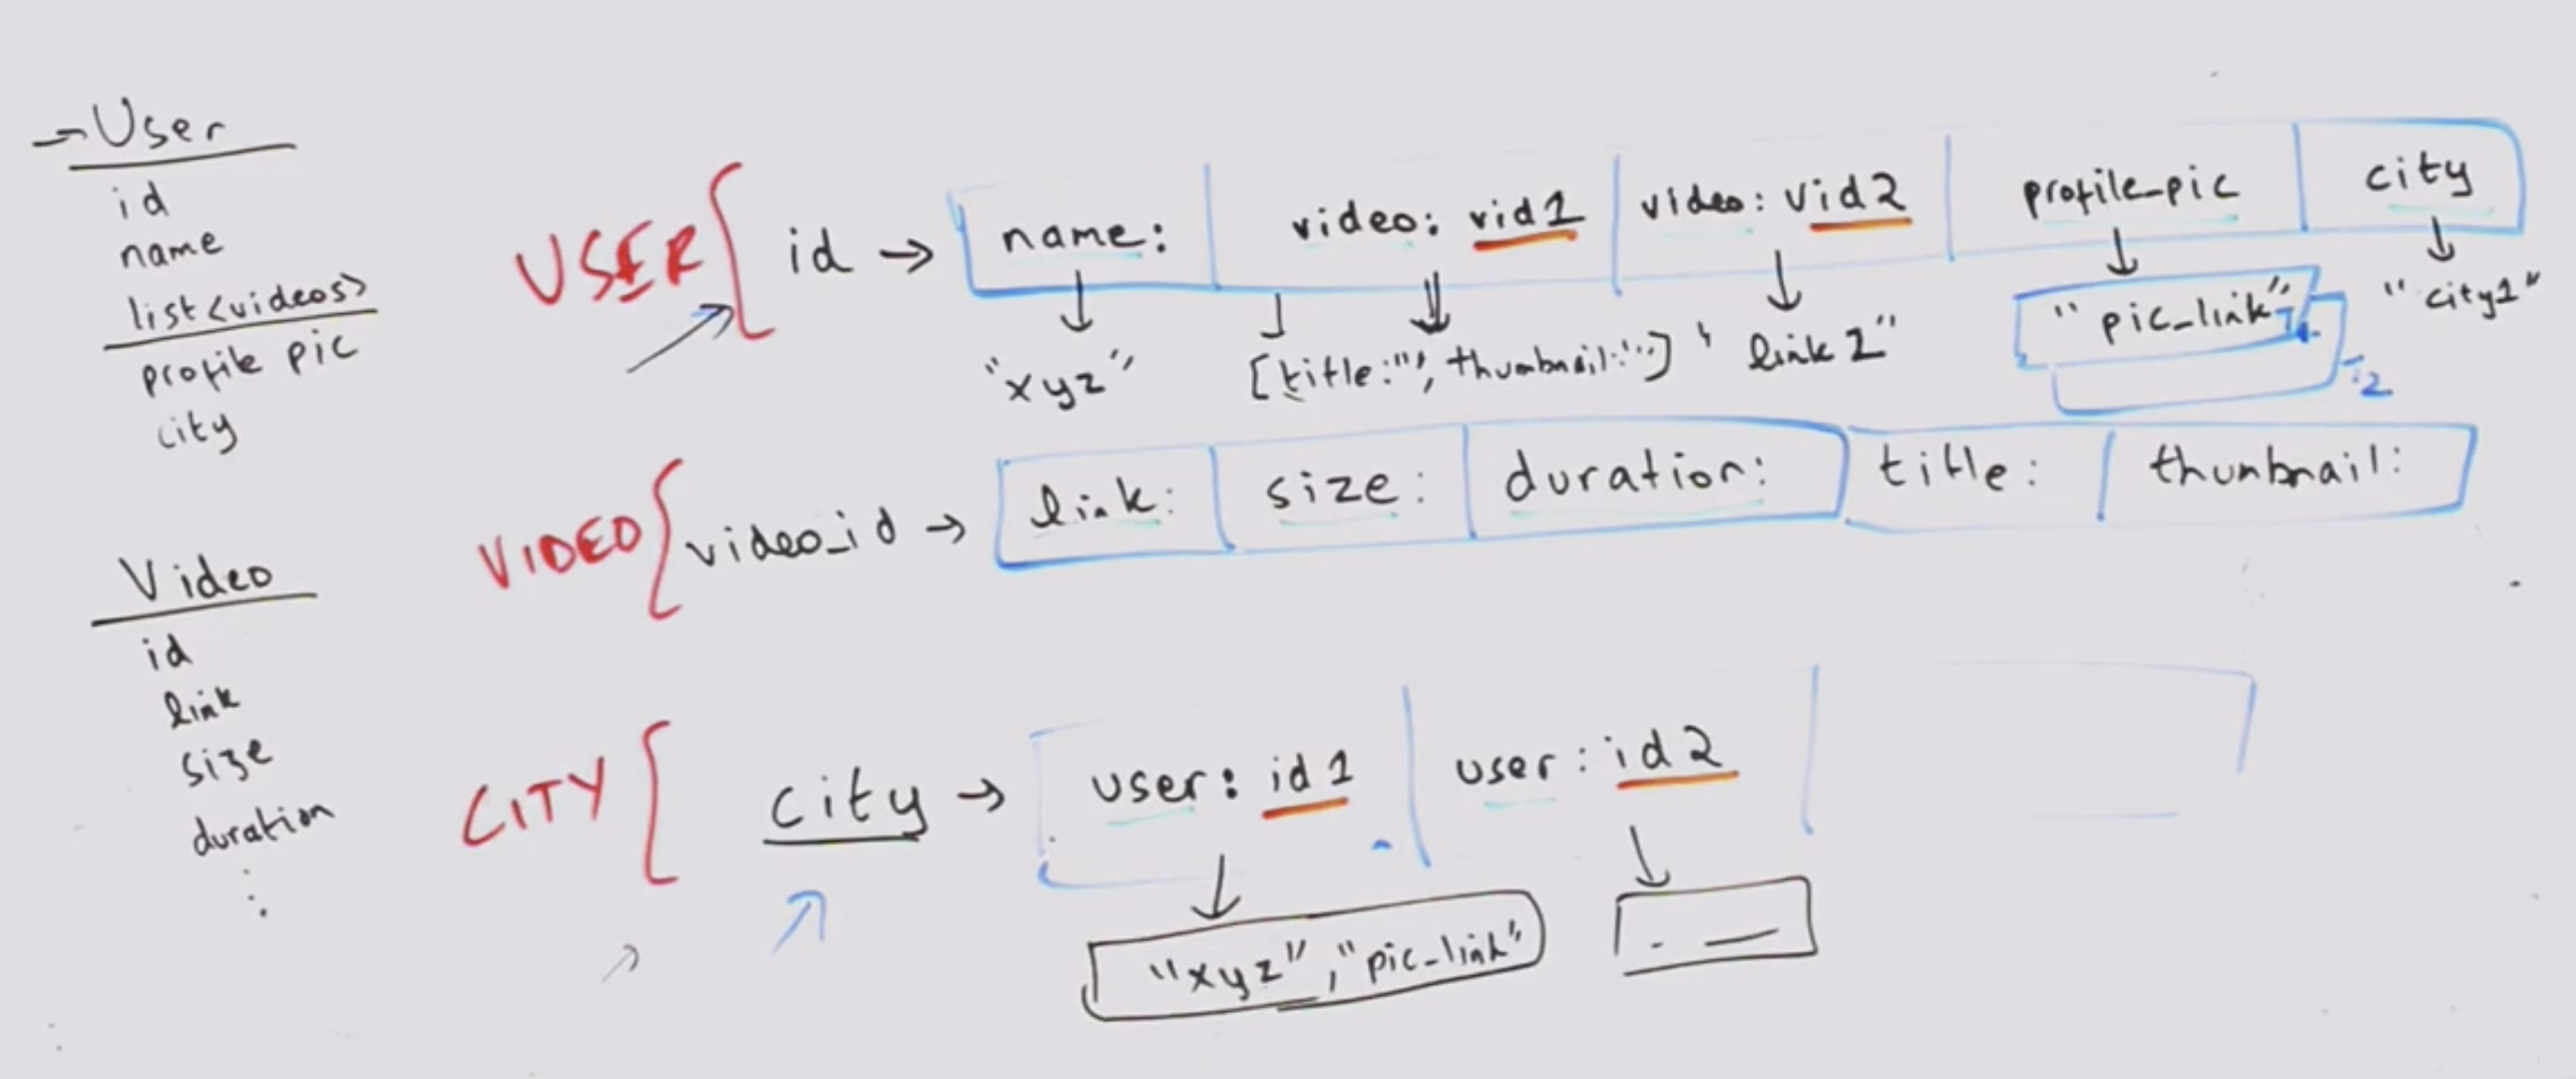 User
id
name
list<videos>
profile pic
city
Video
id
link
size
duration
⋮
USER { id → name: video: vid1 video: vid2 profile_pic city
"xyz" [title:"", thumbnail:"..."] "link 2" "pic_link" T1 "city1"
T2
VIDEO { video_id → link: size: duration: title: thumbnail:
CITY { city → user: id1 user: id2
"xyz", "pic_link"